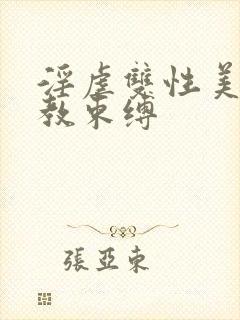 淫虐雙性美
教束縛
張亞東